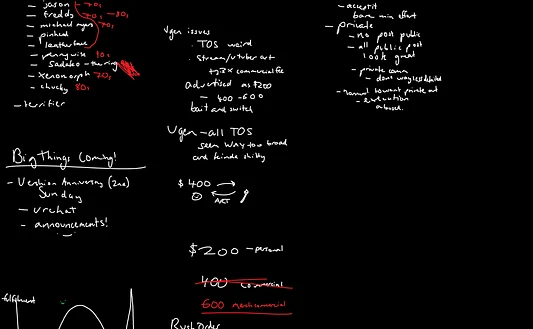 - Jason - 70s
- freddy 70s, - 80s
- michael myers 70s
- pinhead
- leatherface
- pennywise 90s
- Sadako - the ring
- Xenomorph 70s
- chucky 80s
- terrifier
Big Things Coming!
- Anniversary (2nd)
Sunday
- vrchat
- announcements!
fulfilment
Vgen issues
. TOS weird
. Stream/vtuber art
commercial fee
advertised as $200
- 400 - 600
bait and switch
Vgen - all TOS
seen way too broad
and kinda shitty
$400
ART
$200 - personal
400 commercial
600 commercial
Rush Order
- accept it
bare min effort
- private
- no post public
- all public post
look great
- private comm
- normal to want private art
- execution